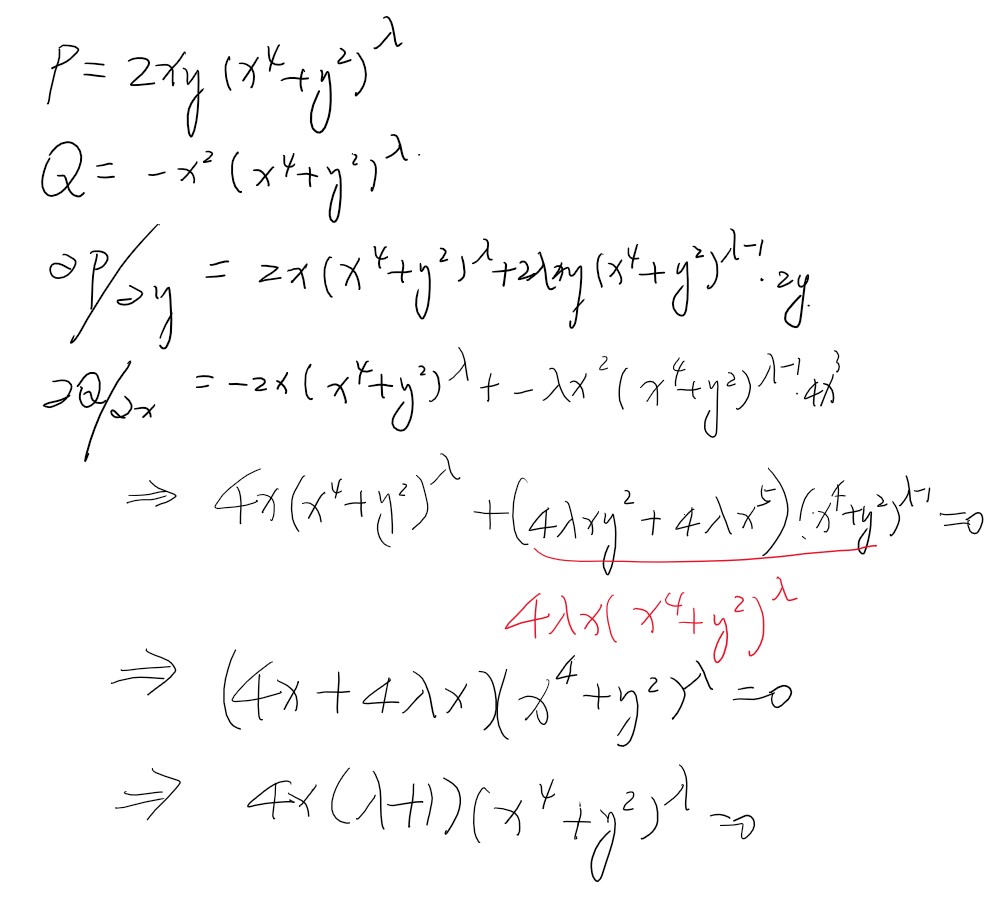 P = 2xy (x⁴+y²)^λ
Q = -x² (x⁴+y²)^λ.
∂P/∂y = 2x(x⁴+y²)^λ + 2λxy(x⁴+y²)^(λ-1) · 2y
∂Q/∂x = -2x(x⁴+y²)^λ + -λx²(x⁴+y²)^(λ-1) · 4x³
⇒ 4x(x⁴+y²)^λ + (4λxy² + 4λx⁵)(x⁴+y²)^(λ-1) = 0
4λx(x⁴+y²)^λ
⇒ (4x + 4λx)(x⁴+y²)^λ = 0
⇒ 4x(λ+1)(x⁴+y²)^λ = 0